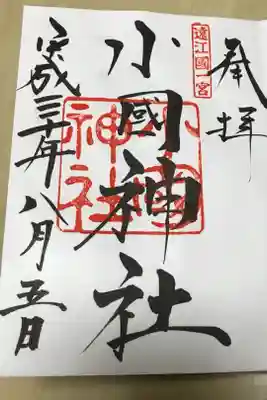 奉拝
遠江國一宮
小國神社
小國神社
平成三十年八月五日